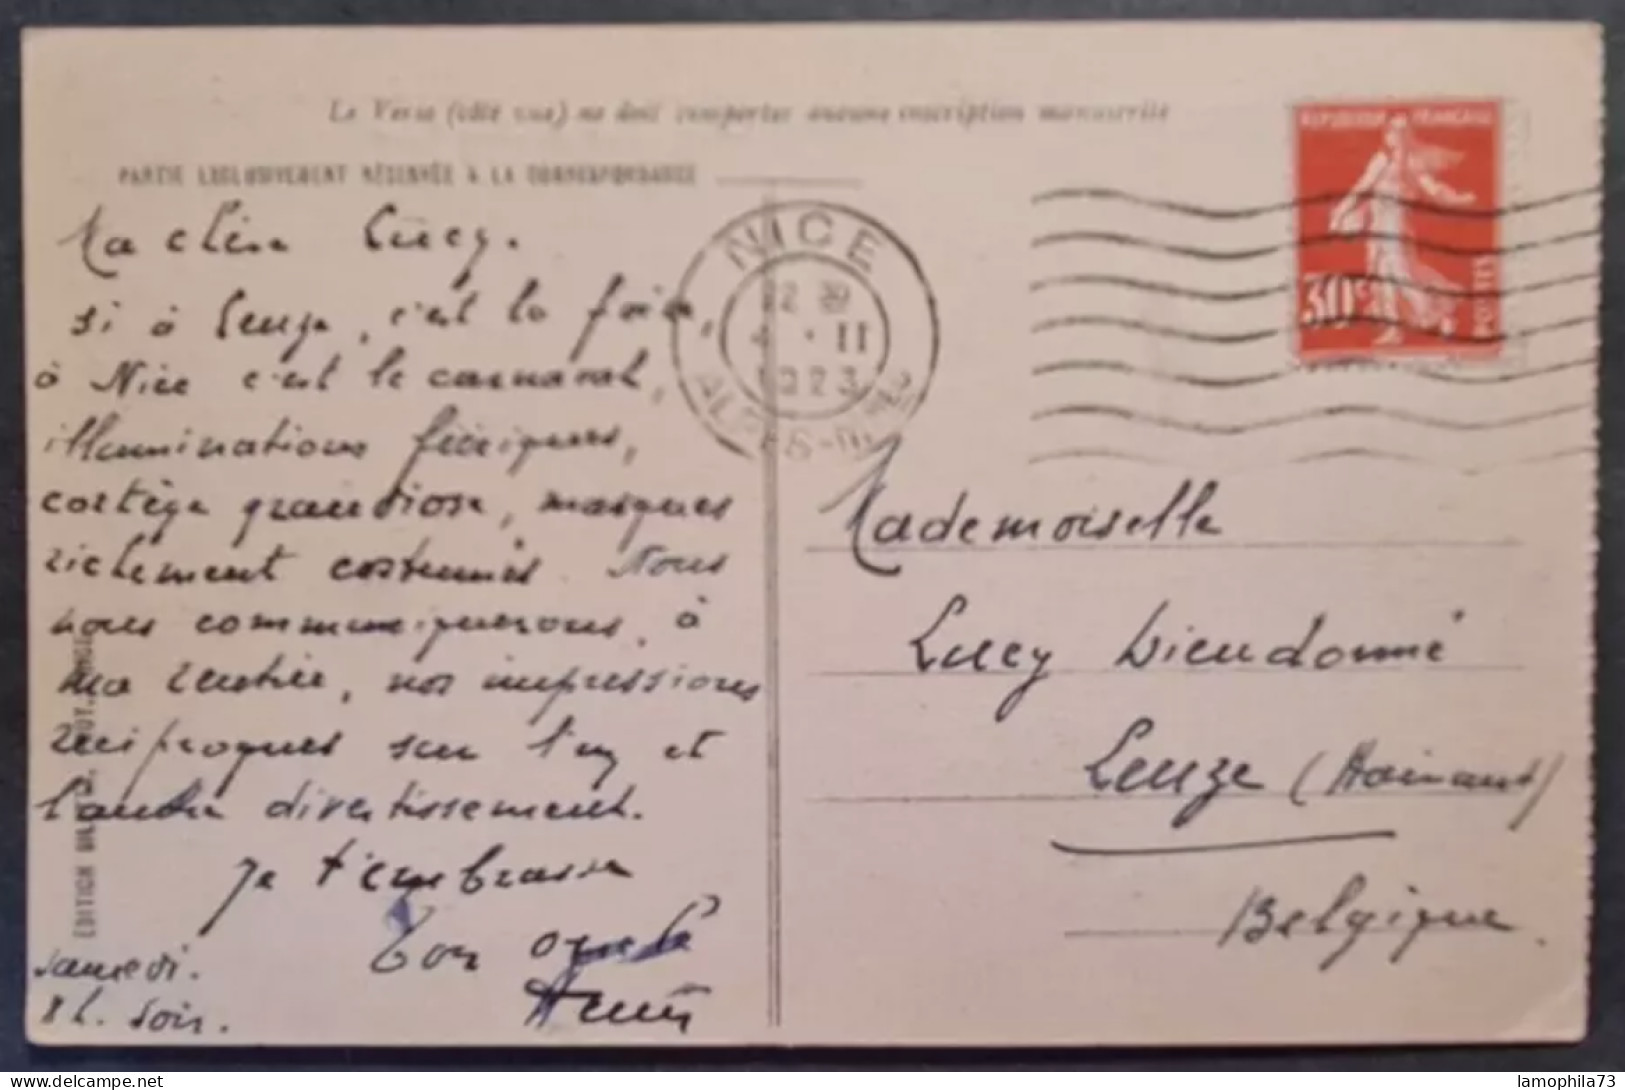 Le Verso (côté vue) ne doit comporter aucune inscription manuscrite
PARTIE EXCLUSIVEMENT RÉSERVÉE A LA CORRESPONDANCE
Ma chère Lucy.
si à Leuze, c'est la foire,
à Nice c'est le carnaval,
illuminations féeriques,
cortège grandiose, masques
richement costumés. Nous
nous communiquerons, à
ma rentrée, nos impressions
réciproques sur l'un et
l'autre divertissement.
Je t'embrasse
Ton oncle
Samedi.
8 h. soir.
EDITION
NICE
4 · II
1923
ALPES-MMES
REPUBLIQUE FRANÇAISE
30c
POSTES
Mademoiselle
Lucy Dieudonné
Leuze (Hainaut)
Belgique
lamophila73